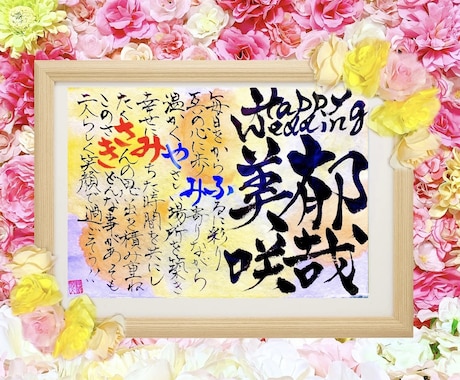 Happy
Wedding
郁哉
美咲
毎日をからふるに彩り
互いの心に歩み寄りながら
温かくやさしい場所を築き
幸せにみちた時間を共にし
たくさんの思い出を積み重ね
このさきどんな事があっても
二人らしく笑顔で過ごそう!!